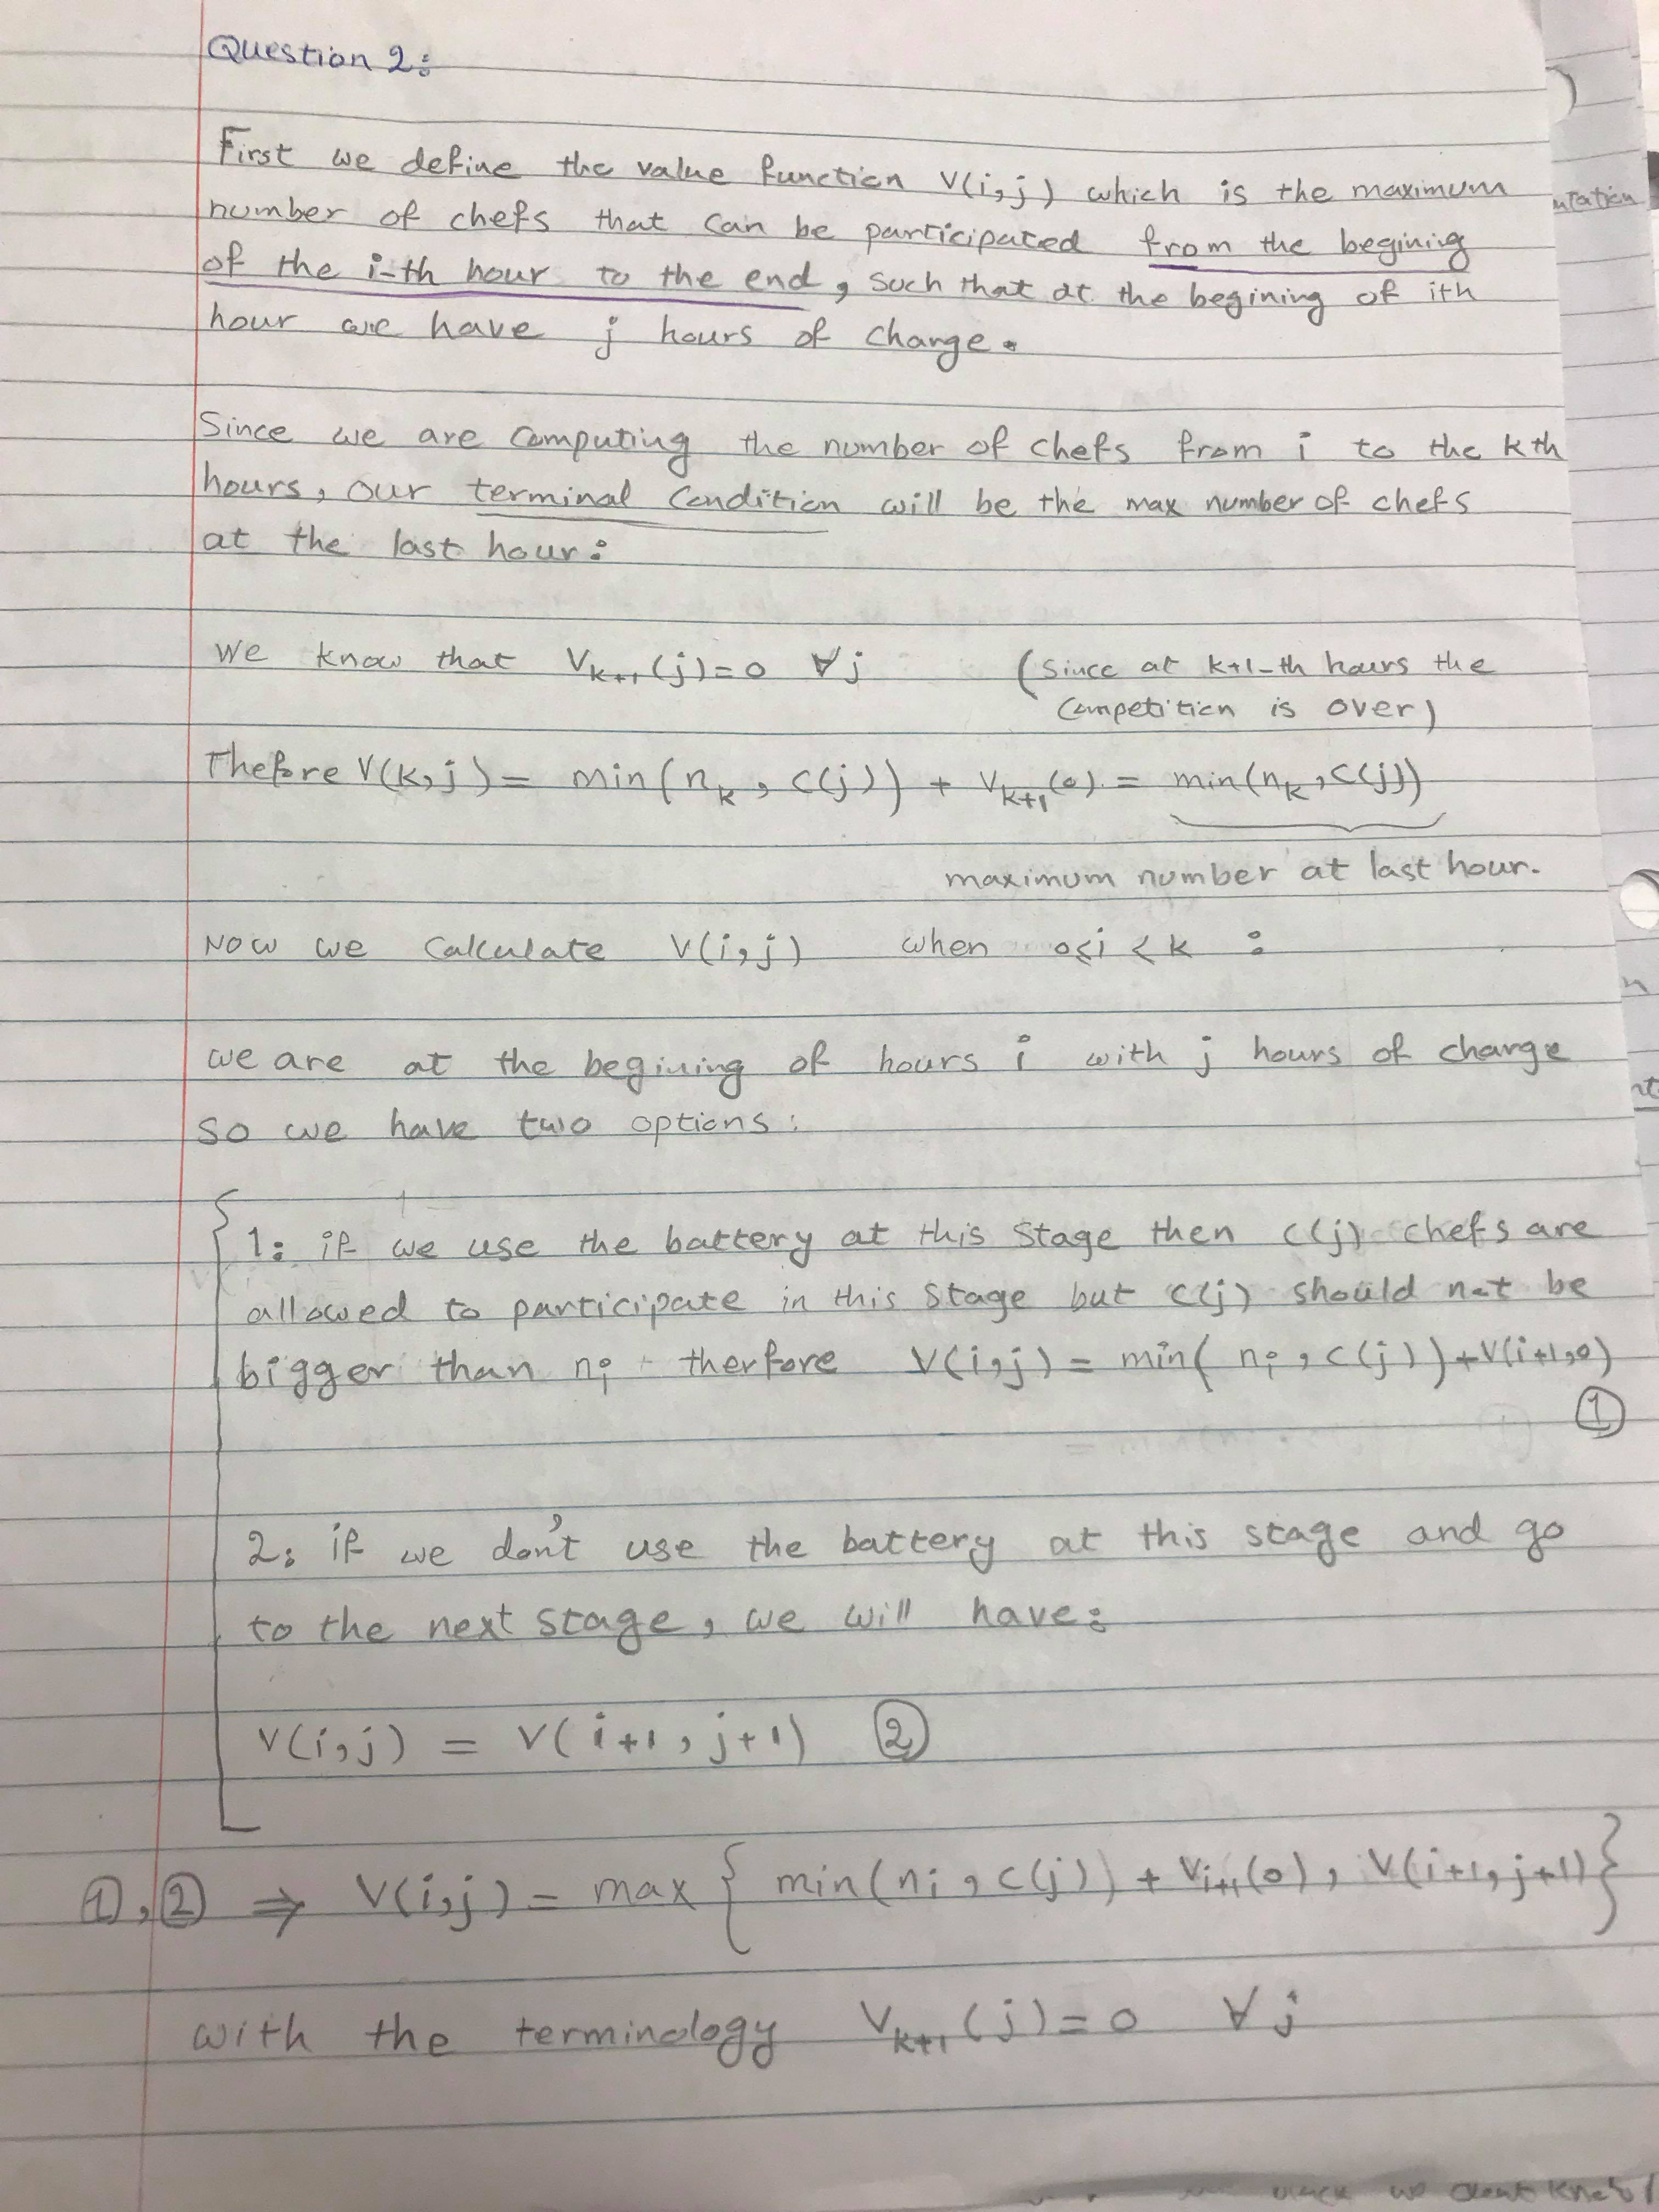 Question 2:
First we define the value function V(i,j) which is the maximum
number of chefs that can be participated from the begining
of the i-th hour to the end, such that at the begining of ith
hour we have j hours of charge.
Since we are computing the number of chefs from i to the kth
hours, our terminal condition will be the max number of chefs
at the last hour:
We know that V_{k+1}(j)=0 ∀j (since at k+1-th hours the
competition is over)
Thefore V(k,j) = min(n_k, c(j)) + V_{k+1}(0) = min(n_k, c(j))
maximum number at last hour.
Now we calculate V(i,j) when 0≤i<k :
we are at the begining of hours i with j hours of charge
so we have two options:
1: if we use the battery at this stage then c(j) chefs are
allowed to participate in this stage but c(j) should not be
bigger than n_i therfore V(i,j) = min(n_i, c(j)) + V(i+1,0)
①
2: if we don't use the battery at this stage and go
to the next stage, we will have:
V(i,j) = V(i+1, j+1) ②
①,② ⇒ V(i,j) = max { min(n_i, c(j)) + V_{i+1}(0), V(i+1,j+1) }
with the terminology V_{k+1}(j)=0 ∀j